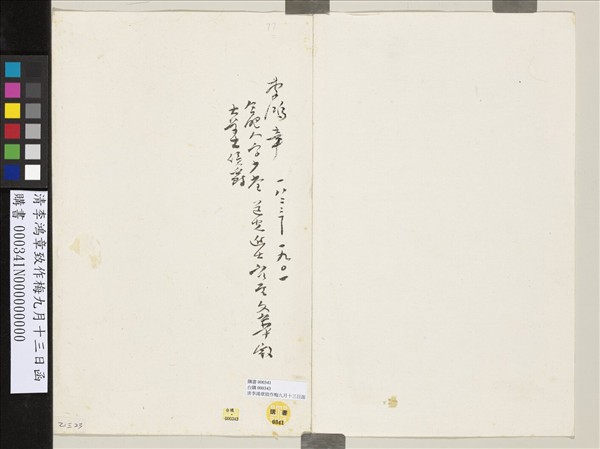 李鴻章 一八二三—一九〇一
合肥人字少荃 道光進士官至文華殿
大學士 侯爵
清李鴻章致作梅九月十三日函
購書 000341N000000000
購書 000341
台購 000343
清李鴻章致作梅九月十三日函
台購
000343
購書
0341